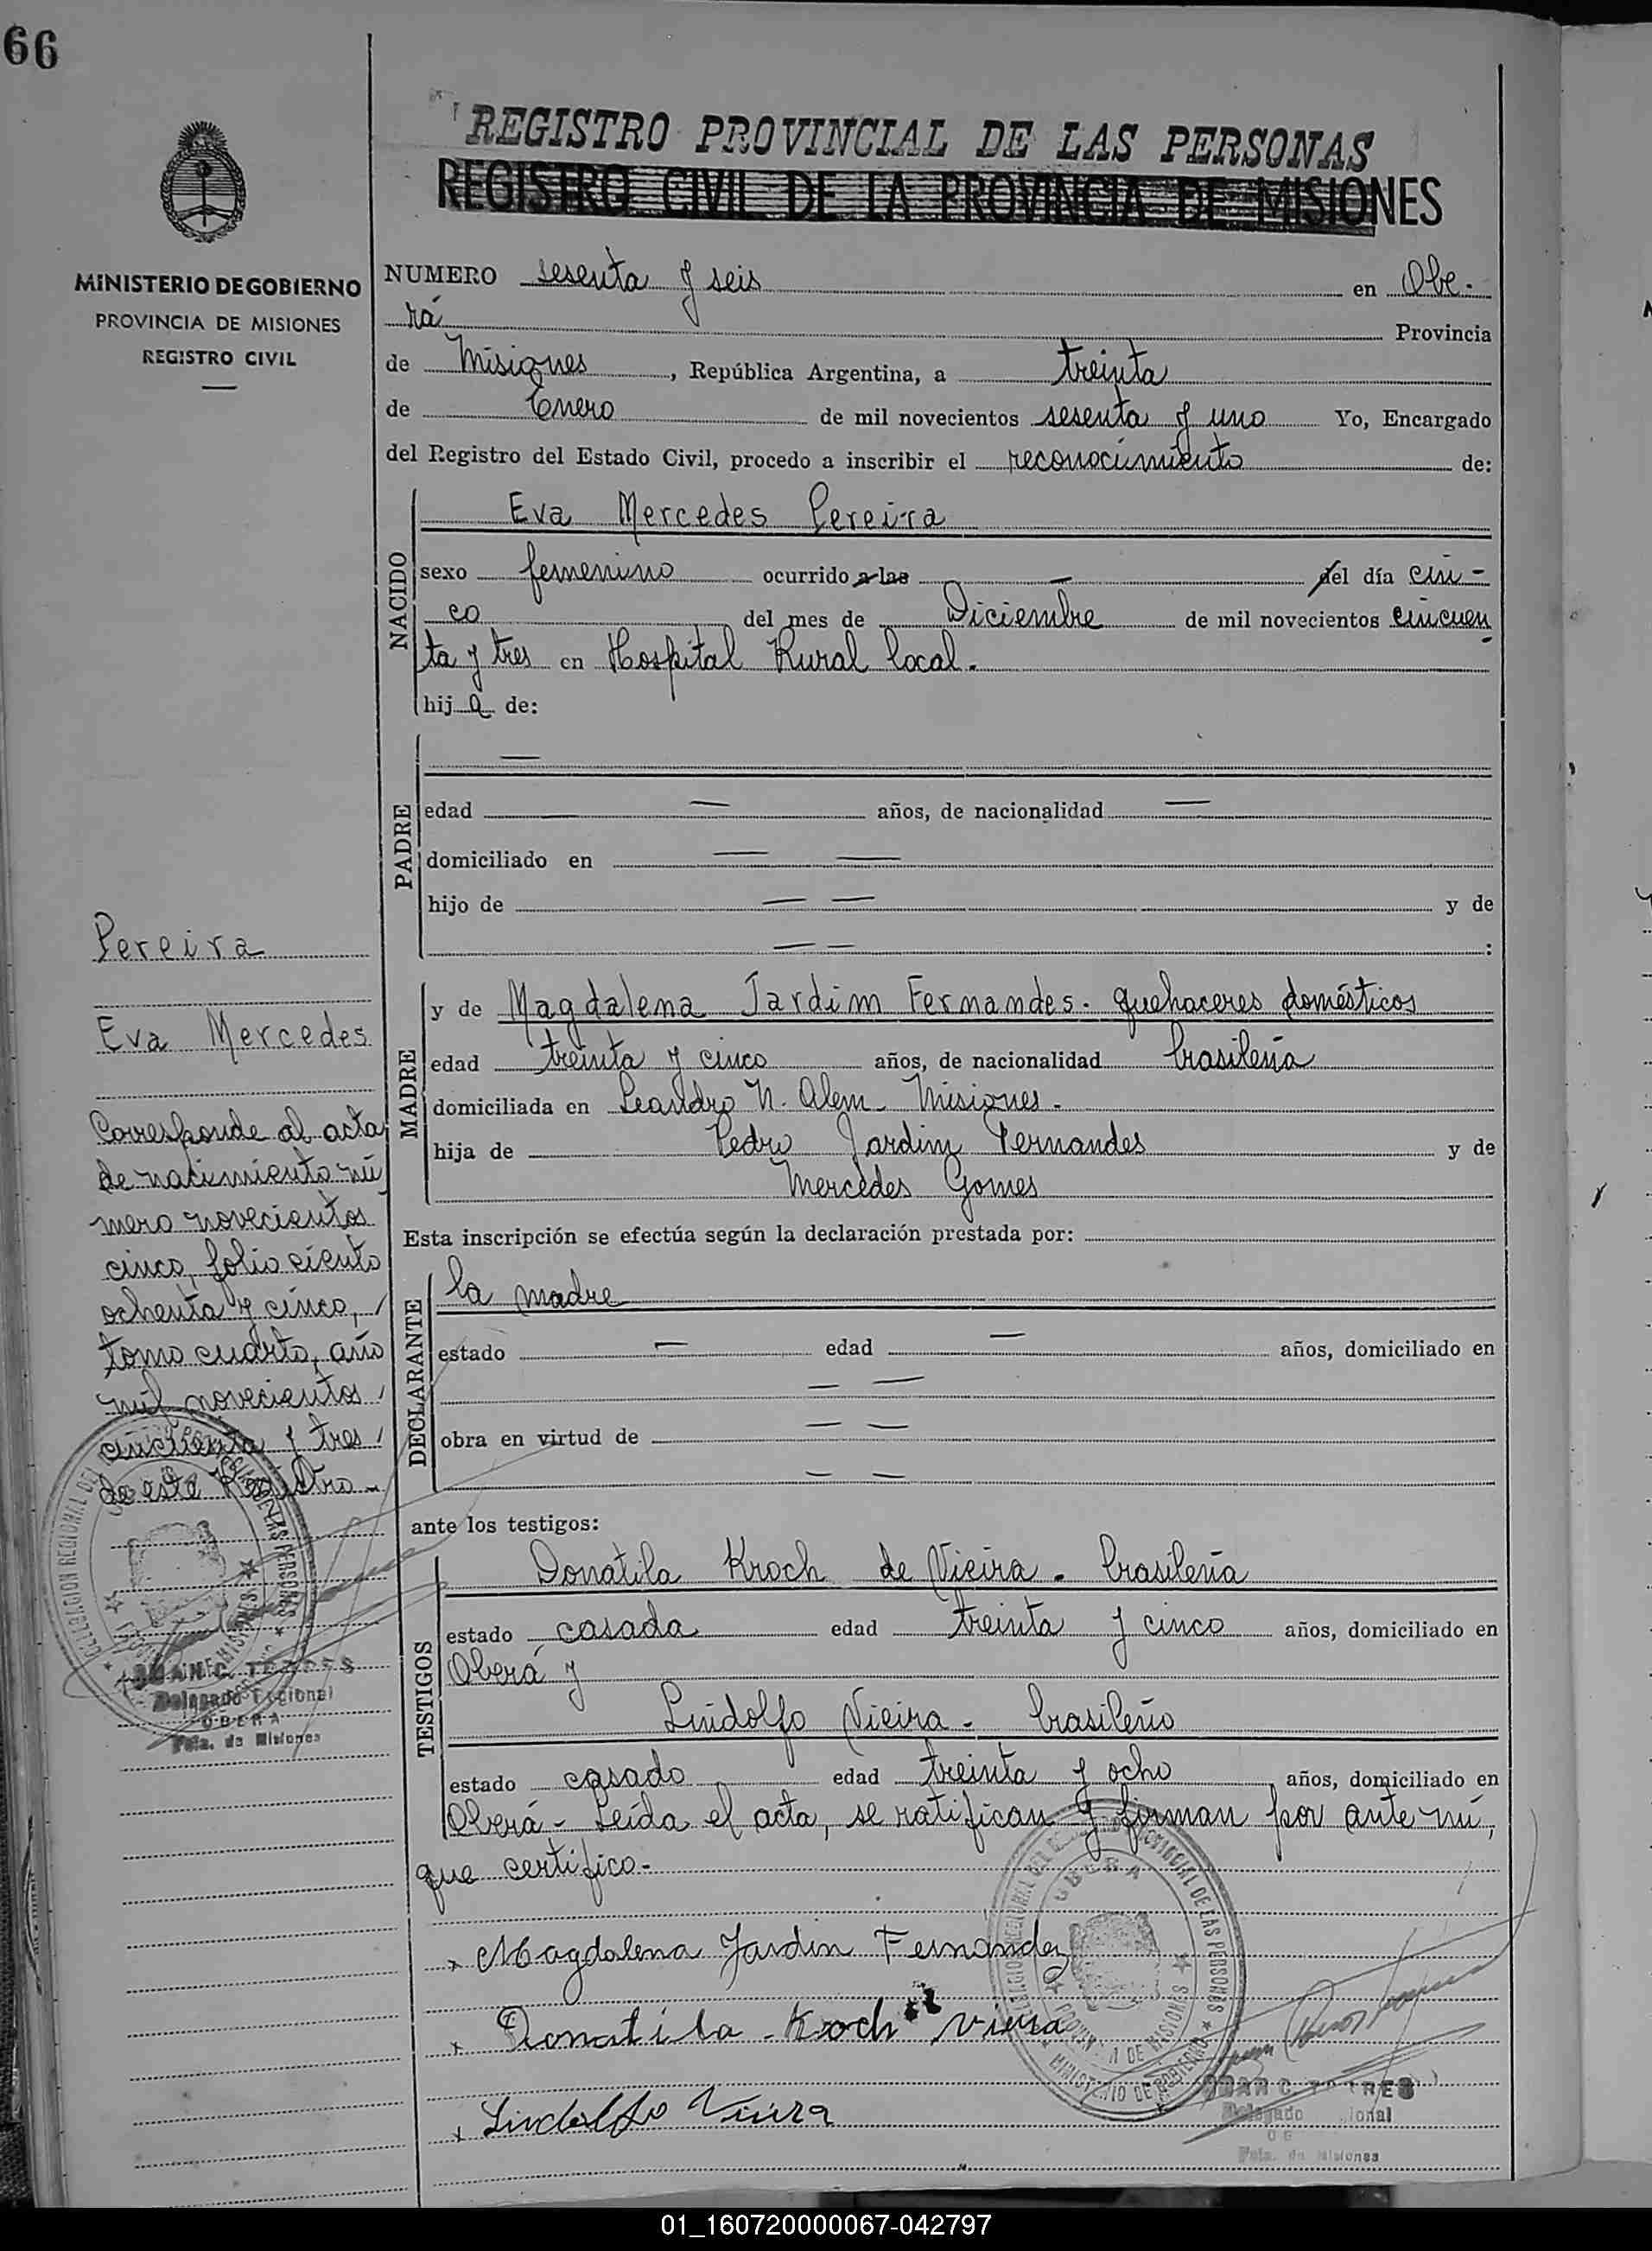 66
REGISTRO PROVINCIAL DE LAS PERSONAS
REGISTRO CIVIL DE LA PROVINCIA DE MISIONES
MINISTERIO DE GOBIERNO
PROVINCIA DE MISIONES
REGISTRO CIVIL
NUMERO sesenta y seis en Obe-
rá Provincia
de Misiones, República Argentina, a treinta
de Enero de mil novecientos sesenta y uno Yo, Encargado
del Registro del Estado Civil, procedo a inscribir el reconocimiento de:
NACIDO
Eva Mercedes Pereira
sexo femenino ocurrido a las — del día cin-
co del mes de Diciembre de mil novecientos cincuen
ta y tres en Hospital Rural local.
hija de:
PADRE
—
edad — años, de nacionalidad —
domiciliado en — —
hijo de — — y de
— — :
Pereira
Eva Mercedes
Corresponde al acta
de nacimiento nú
mero novecientos
cinco, folio ciento
ochenta y cinco,
tomo cuarto, año
mil novecientos
cincuenta y tres
de este Registro.-
MADRE
y de Magdalena Jardim Fernandes. quehaceres domésticos
edad treinta y cinco años, de nacionalidad brasileña
domiciliada en Leandro N. Alem. Misiones.
hija de Pedro Jardim Fernandes y de
Mercedes Gomes
Esta inscripción se efectúa según la declaración prestada por:
DECLARANTE
la madre
estado — edad — años, domiciliado en
— —
obra en virtud de — —
— —
ante los testigos:
TESTIGOS
Donatila Kroch de Vieira. brasileña
estado casada edad treinta y cinco años, domiciliado en
Oberá y
Lindolfo Vieira. brasileño
estado casado edad treinta y ocho años, domiciliado en
Oberá- Leída el acta, se ratifican y firman por ante mi,
que certifico.-
Magdalena Jardin Fernandez
Donatila Koch Vieira
Lindolfo Vieira
DELEGACION REGIONAL DEL REGISTRO PROVINCIAL DE LAS PERSONAS
OBERA
PROVINCIA DE MISIONES
MINISTERIO DE GOBIERNO
JUAN C. TORRES
Delegado Regional
OBERA
Pcia. de Misiones
01_160720000067-042797